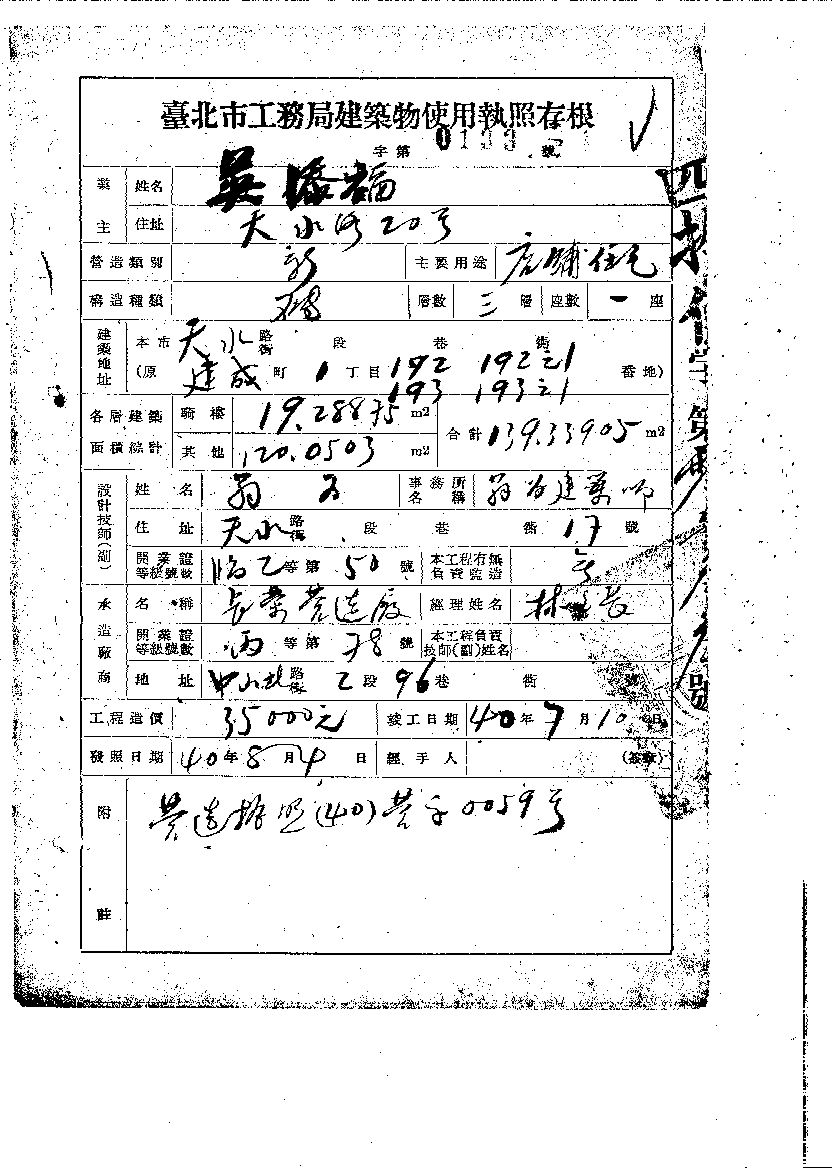 臺北市工務局建築物使用執照存根
字第 0193 號
業主 姓名 吳添福
住址 天水路20号
營造類別 新 主要用途 店舖住宅
構造種類 磚 層數 三層 座數 一座
建築地址 本市 天水 路街 段 巷 街
(原 建成町 1 丁目 192 192之1 番地)
193 193之1
各層建築面積綜計 騎樓 19.28875 m2 合計 139.33905 m2
其他 120.0503 m2
設計技師(副) 姓名 事務所名稱
住址 天水 路街 段 巷 街 17 號
開業證等級號數 臨乙等第 50 號 本工程有無負責監造
承造廠商 名稱 長榮营造廠 經理姓名 林 長
開業證等級號數 丙等第 78 號 本工程負責技師(副)姓名
地址 中山北 路街 2段 96巷 街 號
工程造價 35000元 竣工日期 40年7月10日
發照日期 40年8月4日 經手人 (簽章)
附註 营造执照(40)营字0059号